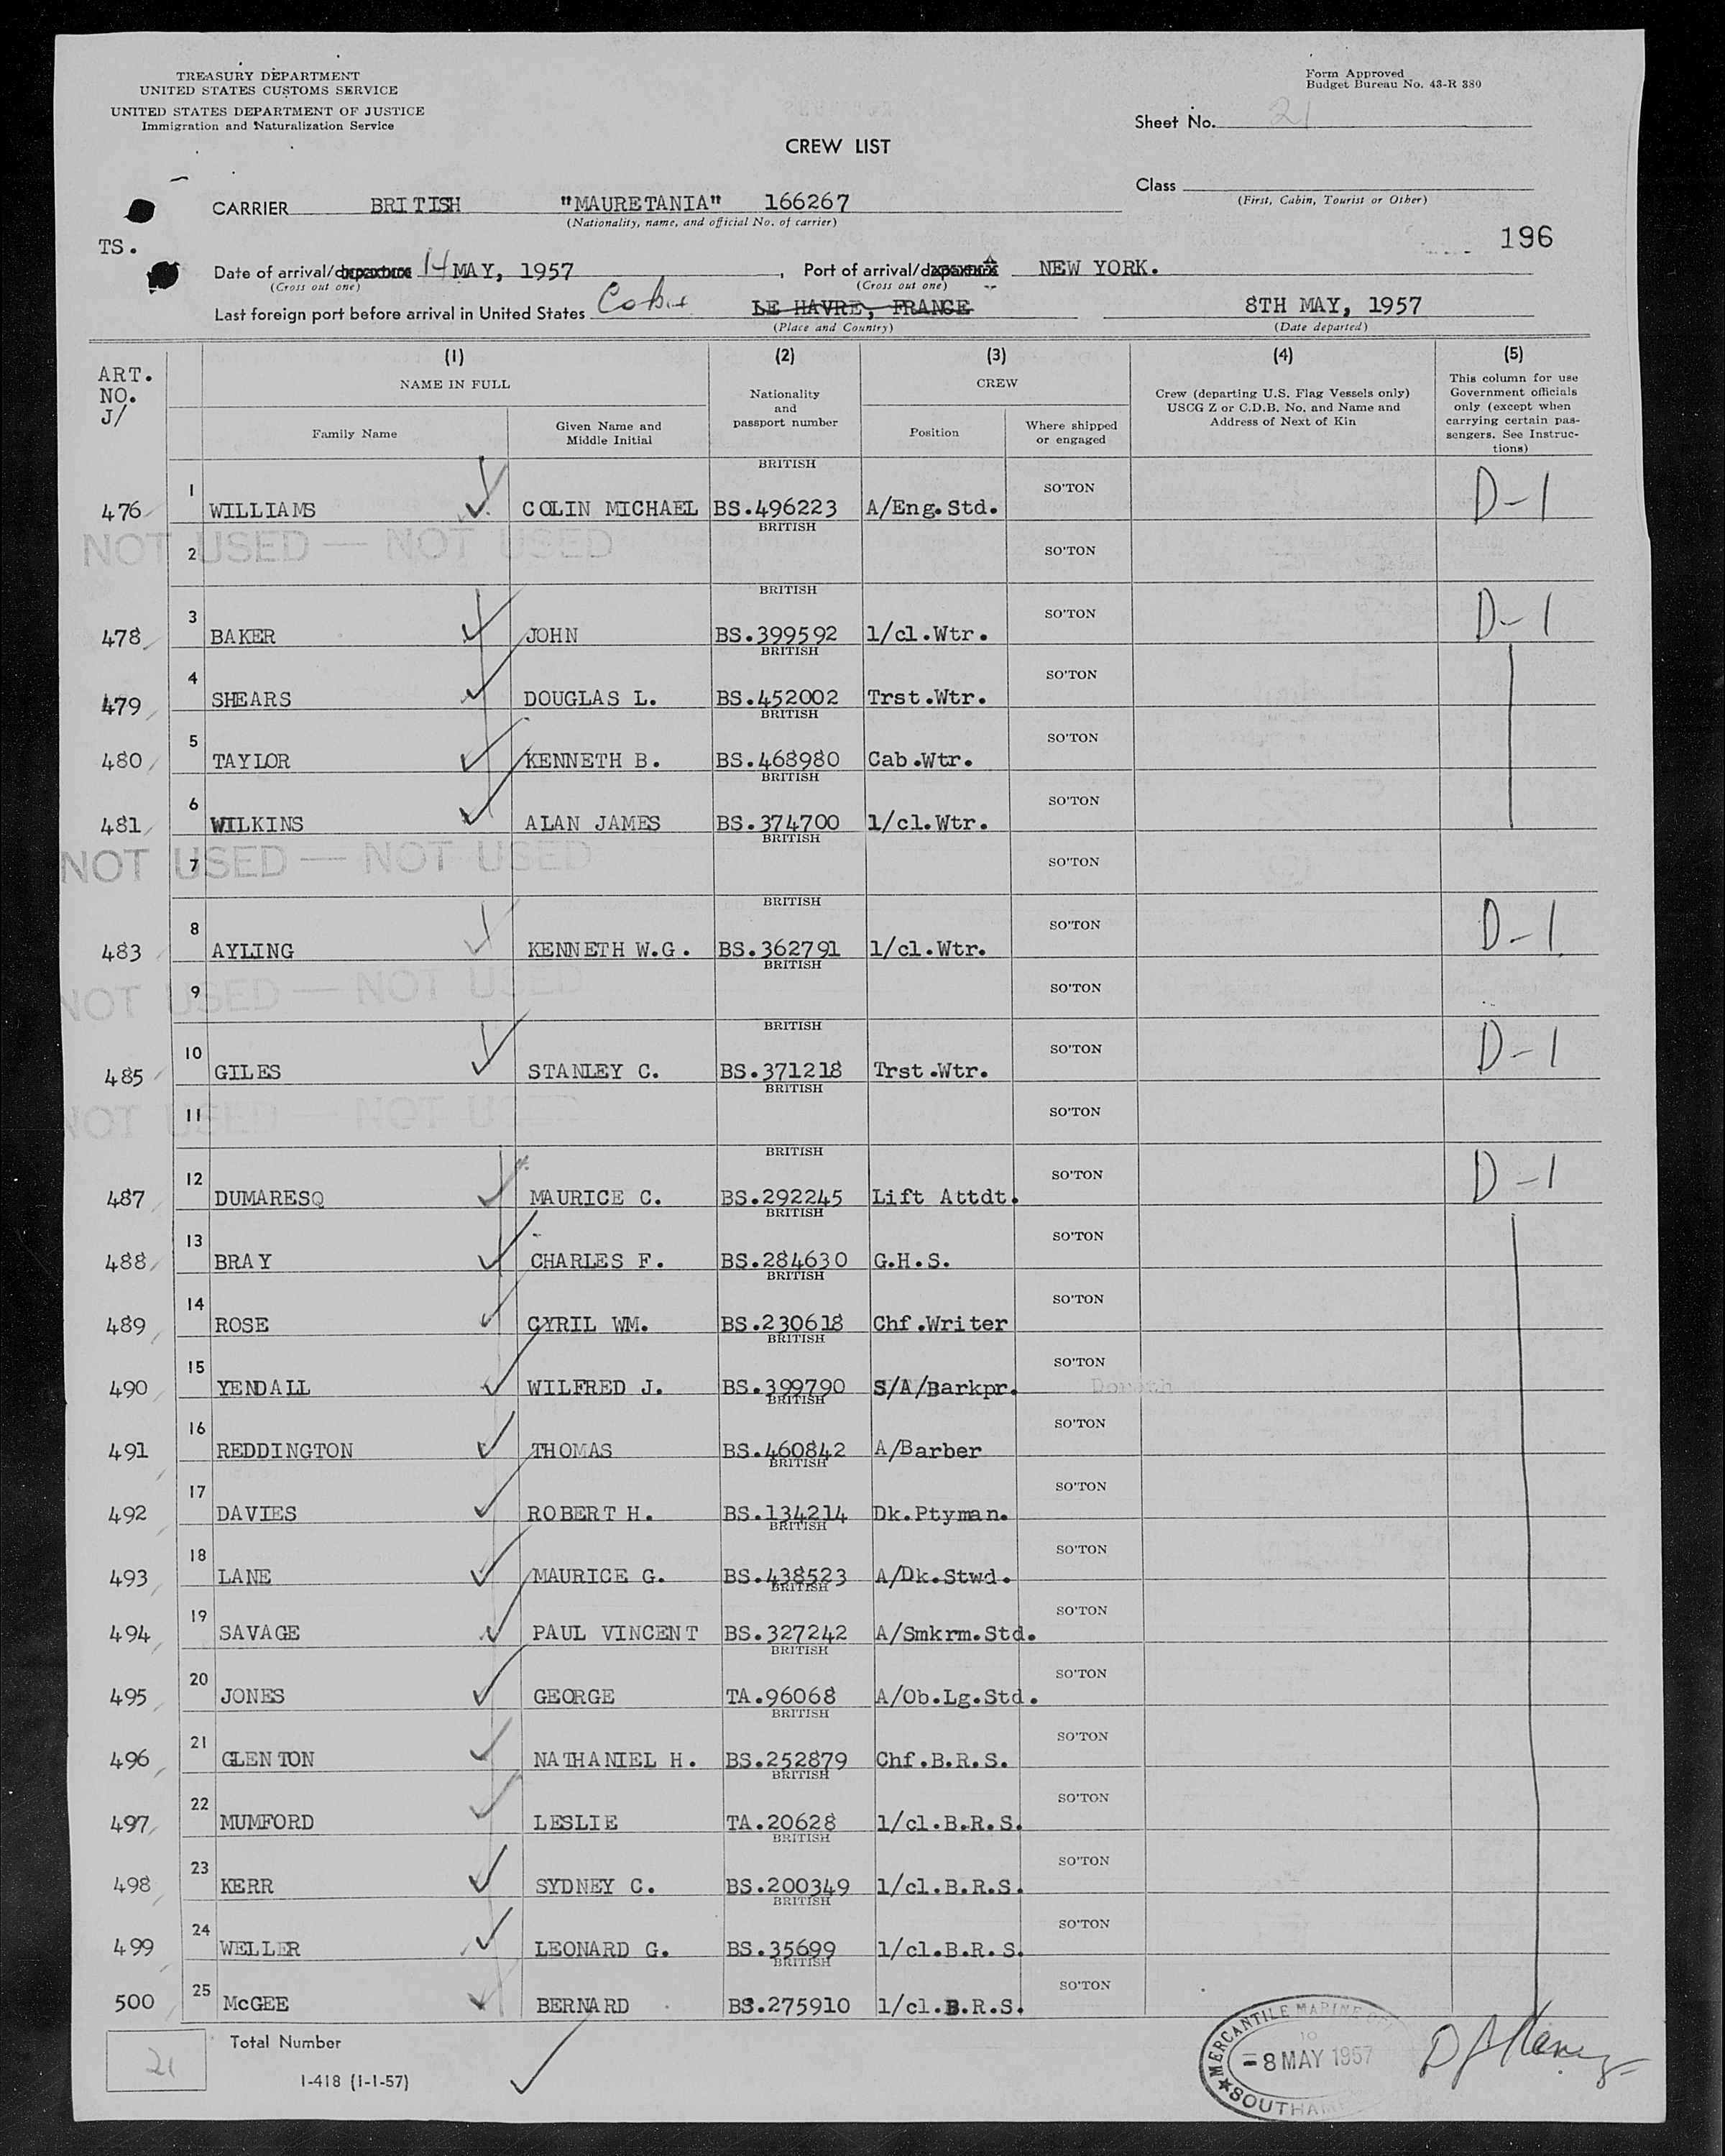 TREASURY DEPARTMENT
UNITED STATES CUSTOMS SERVICE
UNITED STATES DEPARTMENT OF JUSTICE
Immigration and Naturalization Service
Form Approved
Budget Bureau No. 43-R 380
Sheet No. 21
CREW LIST
Class
(First, Cabin, Tourist or Other)
CARRIER BRITISH "MAURETANIA" 166267
(Nationality, name, and official No. of carrier)
TS.
196
Date of arrival/departure 14 MAY, 1957, Port of arrival/departure NEW YORK.
(Cross out one) (Cross out one)
Last foreign port before arrival in United States Cobh LE HAVRE, FRANCE 8TH MAY, 1957
(Place and Country) (Date departed)
ART. NO. J/
(1) (2) (3) (4) (5)
NAME IN FULL
Family Name
Given Name and Middle Initial
Nationality and passport number
CREW
Position
Where shipped or engaged
Crew (departing U.S. Flag Vessels only) USCG Z or C.D.B. No. and Name and Address of Next of Kin
This column for use Government officials only (except when carrying certain passengers. See Instructions)
476 1 WILLIAMS COLIN MICHAEL BRITISH BS.496223 A/Eng.Std. SO'TON D-1
2 NOT USED — NOT USED BRITISH SO'TON
478 3 BAKER JOHN BRITISH BS.399592 1/cl.Wtr. SO'TON D-1
479 4 SHEARS DOUGLAS L. BRITISH BS.452002 Trst.Wtr. SO'TON
480 5 TAYLOR KENNETH B. BRITISH BS.468980 Cab.Wtr. SO'TON
481 6 WILKINS ALAN JAMES BRITISH BS.374700 1/cl.Wtr. SO'TON
7 NOT USED — NOT USED BRITISH SO'TON
483 8 AYLING KENNETH W.G. BRITISH BS.362791 1/cl.Wtr. SO'TON D-1
9 NOT USED — NOT USED BRITISH SO'TON
485 10 GILES STANLEY C. BRITISH BS.371218 Trst.Wtr. SO'TON D-1
11 NOT USED — NOT USED BRITISH SO'TON
487 12 DUMARESQ MAURICE C. BRITISH BS.292245 Lift Attdt. SO'TON D-1
488 13 BRAY CHARLES F. BRITISH BS.284630 G.H.S. SO'TON
489 14 ROSE CYRIL WM. BRITISH BS.230618 Chf.Writer SO'TON
490 15 YENDALL WILFRED J. BRITISH BS.399790 S/A/Barkpr. SO'TON
491 16 REDDINGTON THOMAS BRITISH BS.460842 A/Barber SO'TON
492 17 DAVIES ROBERT H. BRITISH BS.134214 Dk.Ptyman. SO'TON
493 18 LANE MAURICE G. BRITISH BS.438523 A/Dk.Stwd. SO'TON
494 19 SAVAGE PAUL VINCENT BRITISH BS.327242 A/Smkrm.Std. SO'TON
495 20 JONES GEORGE BRITISH TA.96068 A/Ob.Lg.Std. SO'TON
496 21 GLENTON NATHANIEL H. BRITISH BS.252879 Chf.B.R.S. SO'TON
497 22 MUMFORD LESLIE BRITISH TA.20628 1/cl.B.R.S. SO'TON
498 23 KERR SYDNEY C. BRITISH BS.200349 1/cl.B.R.S. SO'TON
499 24 WELLER LEONARD G. BRITISH BS.35699 1/cl.B.R.S. SO'TON
500 25 McGEE BERNARD BRITISH BS.275910 1/cl.B.R.S. SO'TON
21 Total Number
I-418 (1-1-57)
MERCANTILE MARINE
-8 MAY 1957